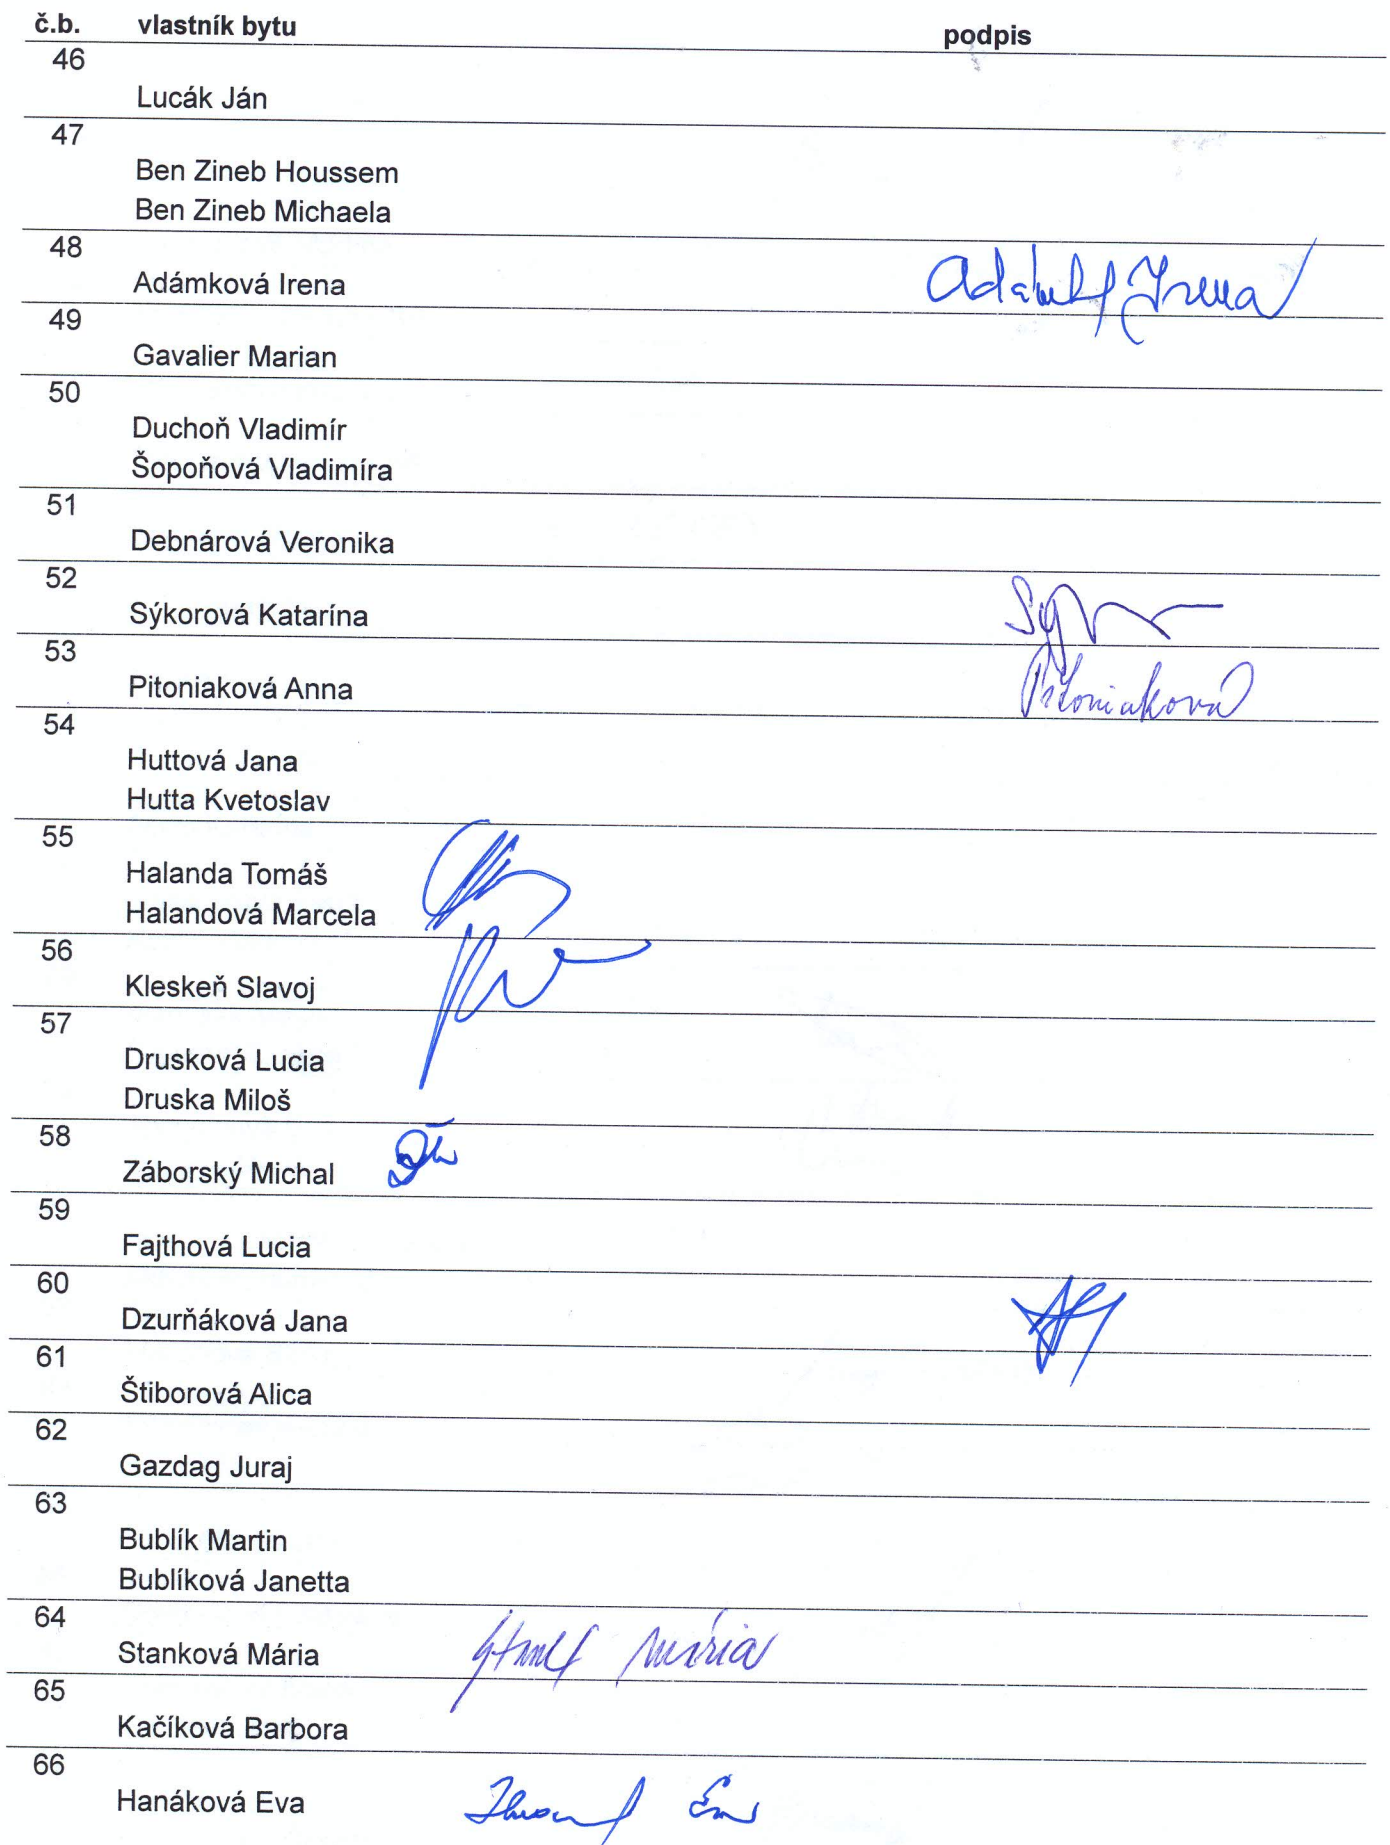 č.b. vlastník bytu podpis
46
Lucák Ján
47
Ben Zineb Houssem
Ben Zineb Michaela
48
Adámková Irena Irena
49
Gavalier Marian
50
Duchoň Vladimír
Šopoňová Vladimíra
51
Debnárová Veronika
52
Sýkorová Katarína
53
Pitoniaková Anna Pitoniaková
54
Huttová Jana
Hutta Kvetoslav
55
Halanda Tomáš
Halandová Marcela
56
Kleskeň Slavoj
57
Drusková Lucia
Druska Miloš
58
Záborský Michal
59
Fajthová Lucia
60
Dzurňáková Jana
61
Štiborová Alica
62
Gazdag Juraj
63
Bublík Martin
Bublíková Janetta
64
Stanková Mária Mária
65
Kačíková Barbora
66
Hanáková Eva